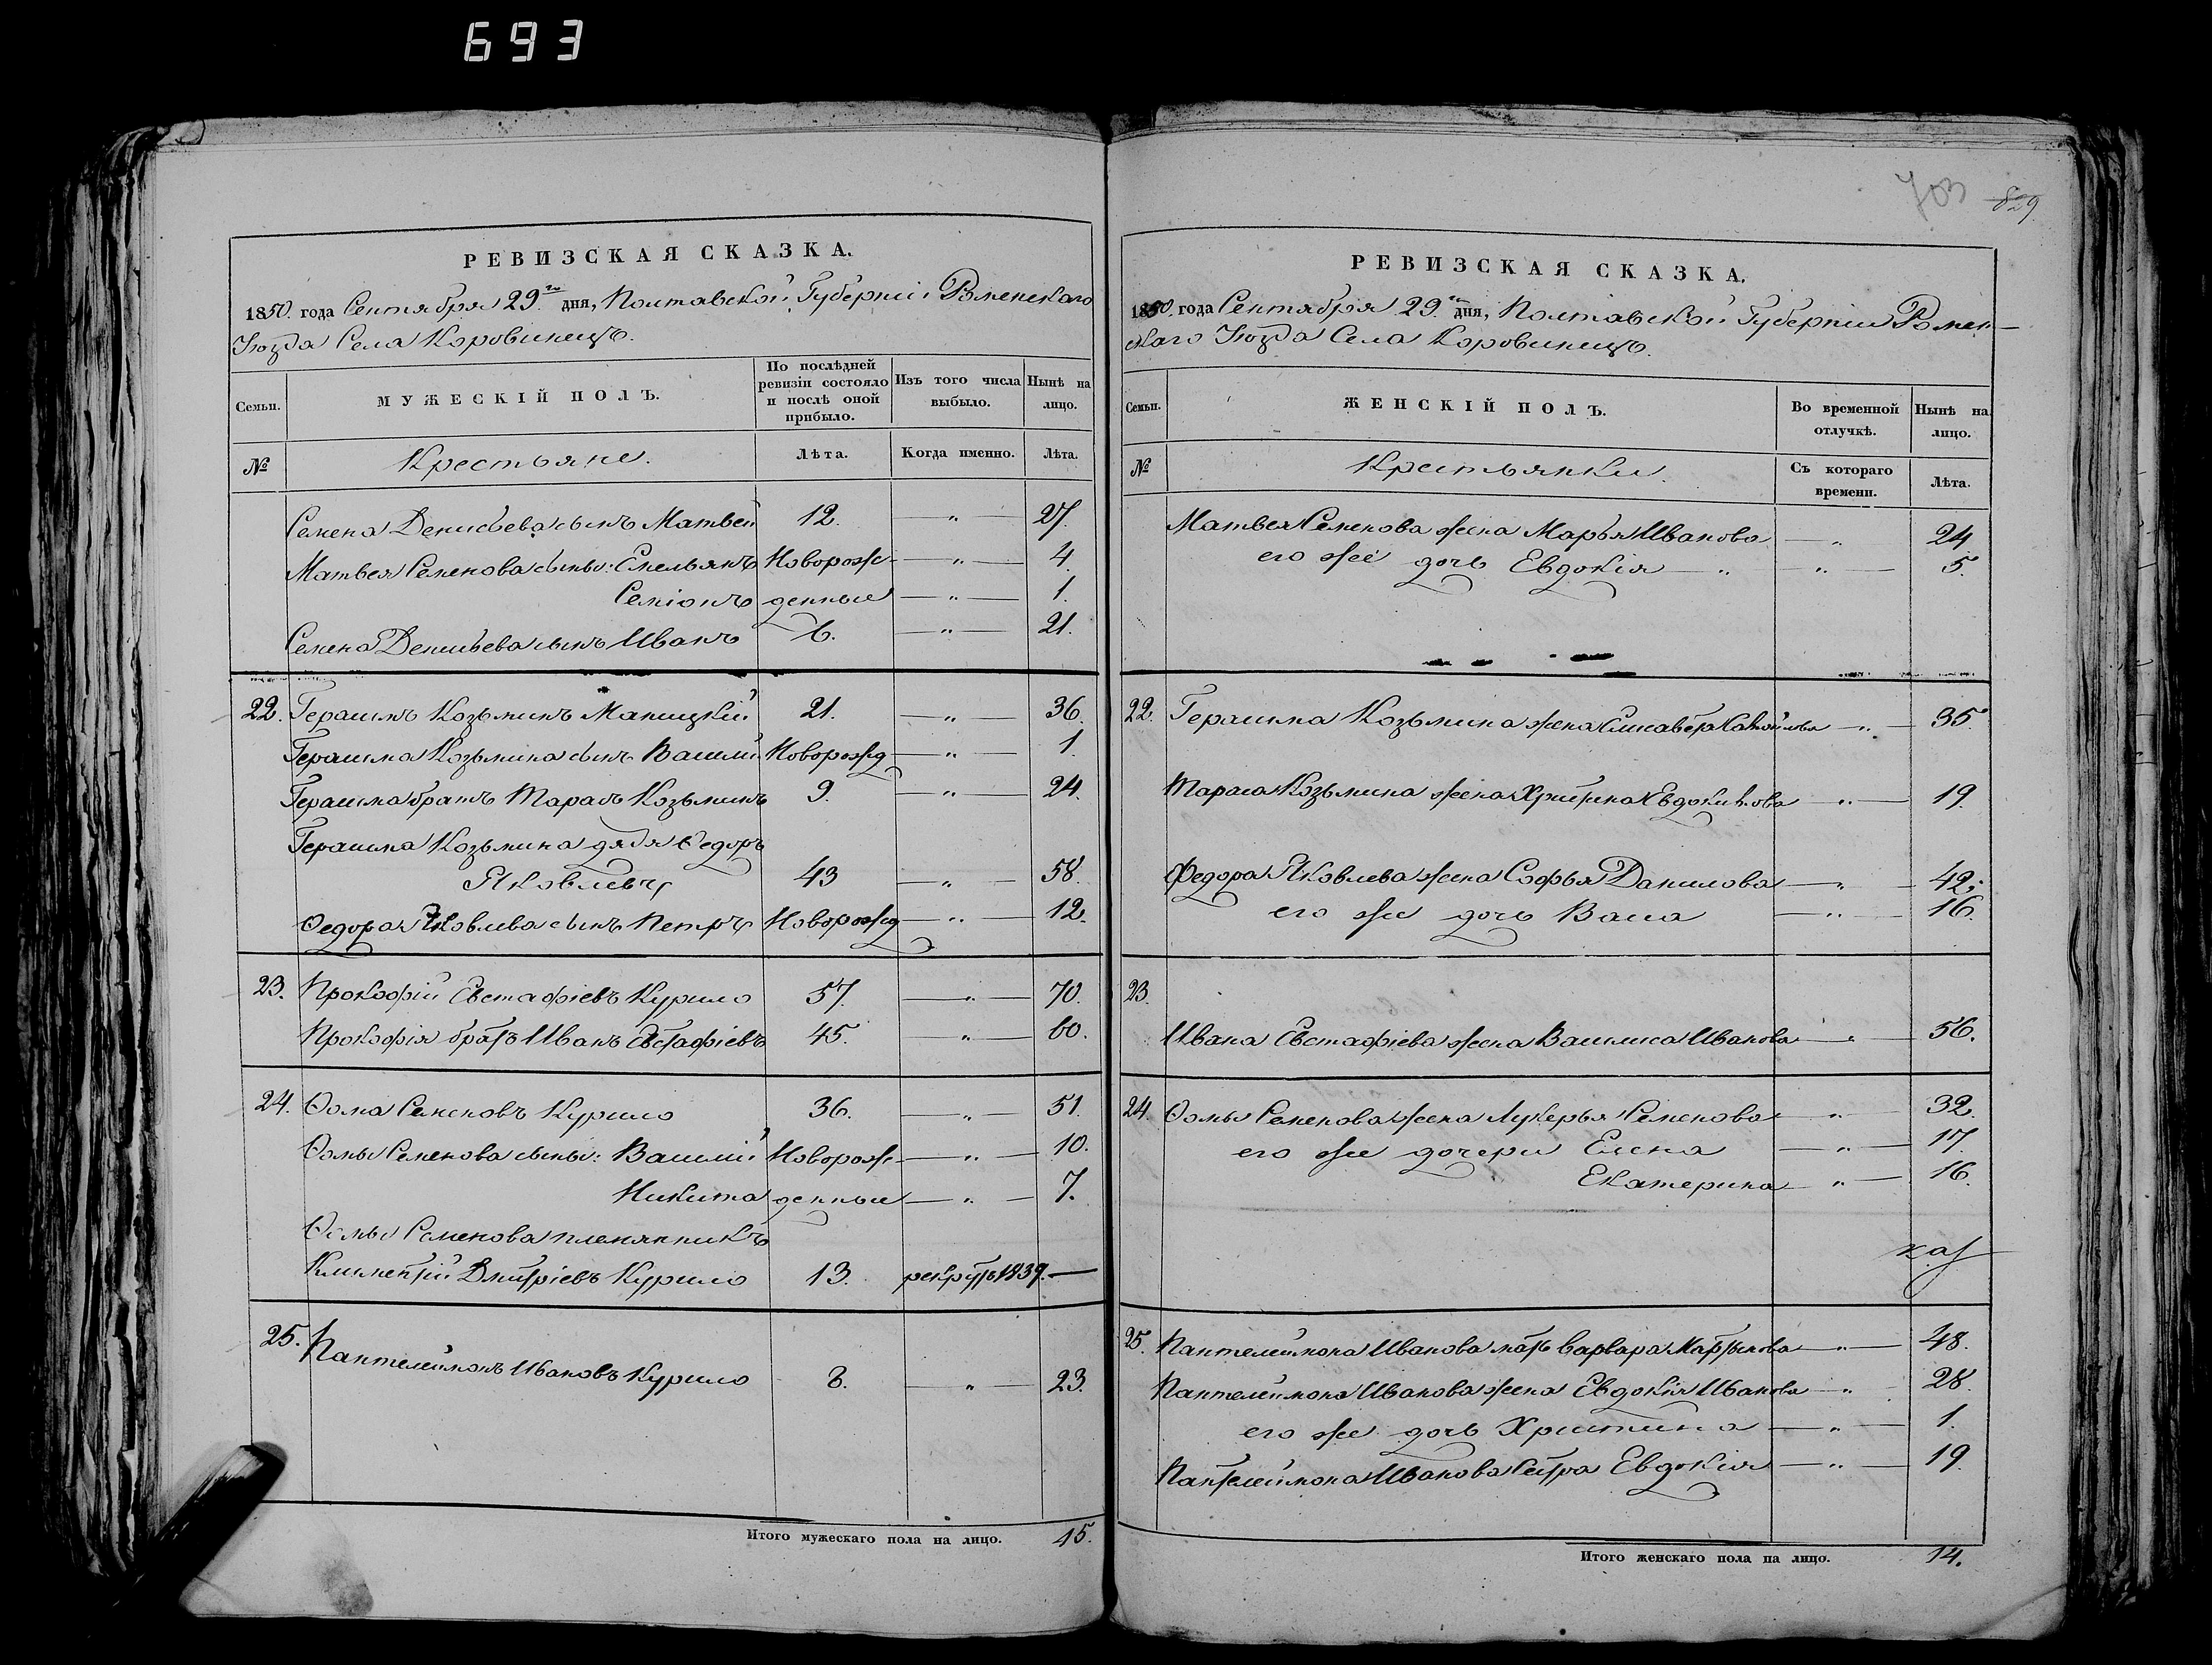 693
703 829
РЕВИЗСКАЯ СКАЗКА.
1850. года Сентября 29.го дня, Полтавской Губерніи Роменскаго
Уѣзда Села Коровинецъ.
Семьи.
МУЖЕСКІЙ ПОЛЪ.
По послѣдней ревизіи состояло и послѣ оной прибыло.
Изъ того числа выбыло.
Нынѣ на лицо.
№
Крестьяне.
Лѣта.
Когда именно.
Лѣта.
Семена Денисьева сынъ Матвей 12. — " — 27.
Матвея Семенова сыны: Емельянъ Новорож- — " — 4.
Семіонъ денные — " — 1.
Семена Денисьева сынъ Иванъ 6. — " — 21.
22. Герасимъ Козьминъ Маницкій 21. — " — 36.
Герасима Козьмина сынъ Василій Новорожд — " — 1.
Герасима братъ Тарасъ Козьминъ 9. — " — 24.
Герасима Козьмина дядя Ѳедоръ
Яковлевъ 43 — " — 58.
Ѳедора Яковлева сынъ Петръ Новорожд — " — 12.
23. Прокофій Евстафіевъ Курило 57. — " — 70.
Прокофія братъ Иванъ Евстафіевъ 45. — " — 60.
24. Ѳома Семеновъ Курило 36. — " — 51.
Ѳомы Семенова сыны: Василій Новорож- — " — 10.
Никита денные — " — 7.
Ѳомы Семенова племянникъ
Климентій Дмитріевъ Курило 13. рекрутъ 1839. —
25. Пантелеймонъ Ивановъ Курило 8. — " — 23.
Итого мужескаго пола на лицо. 15.
РЕВИЗСКАЯ СКАЗКА.
1850. года Сентября 29.го дня, Полтавской Губерніи Ромен-
скаго Уѣзда Села Коровинецъ.
Семьи.
ЖЕНСКІЙ ПОЛЪ.
Во временной отлучкѣ.
Нынѣ на лицо.
№
Крестьянки.
Съ котораго времени.
Лѣта.
Матвея Семенова жена Марья Иванова — " — 24
его же дочь Евдокія — " — " — 5.
22. Герасима Козьмина жена Елисавета Самойлова — " — 35.
Тараса Козьмина жена Христина Евдокимова — " — 19.
Федора Яковлева жена Софья Данилова — " — 42.
его же дочь Васа — " — 16.
23.
Ивана Евстафіева жена Василиса Иванова — " — 56.
24. Ѳомы Семенова жена Лукерья Семенова — " — 32.
его же дочери Елена — " — 17.
Екатерина — " — 16.
25. Пантелеймона Иванова мать Варвара Мартынова — " — 48.
Пантелеймона Иванова жена Евдокія Иванова — " — 28.
его же дочь Христина — " — 1.
Пантелеймона Иванова сестра Евдокія — " — 19.
Итого женскаго пола на лицо. 14.